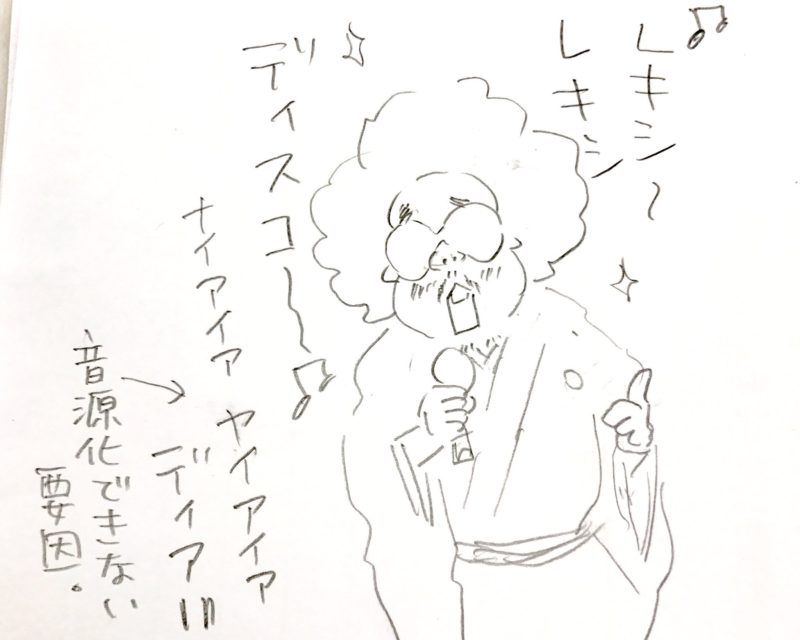 レキシ〜
レキシ
ディスコ〜
ナイアイア
ヤイアイア
ディア!!!
音源化できない
要因.